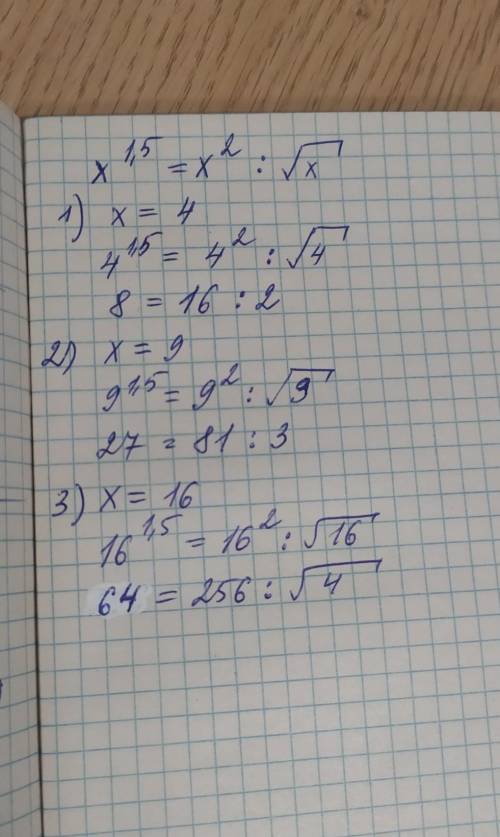 x^1,5 = x^2 : √x
1) x = 4
4^1,5 = 4^2 : √4
8 = 16 : 2
2) x = 9
9^1,5 = 9^2 : √9
27 = 81 : 3
3) x = 16
16^1,5 = 16^2 : √16
64 = 256 : √4